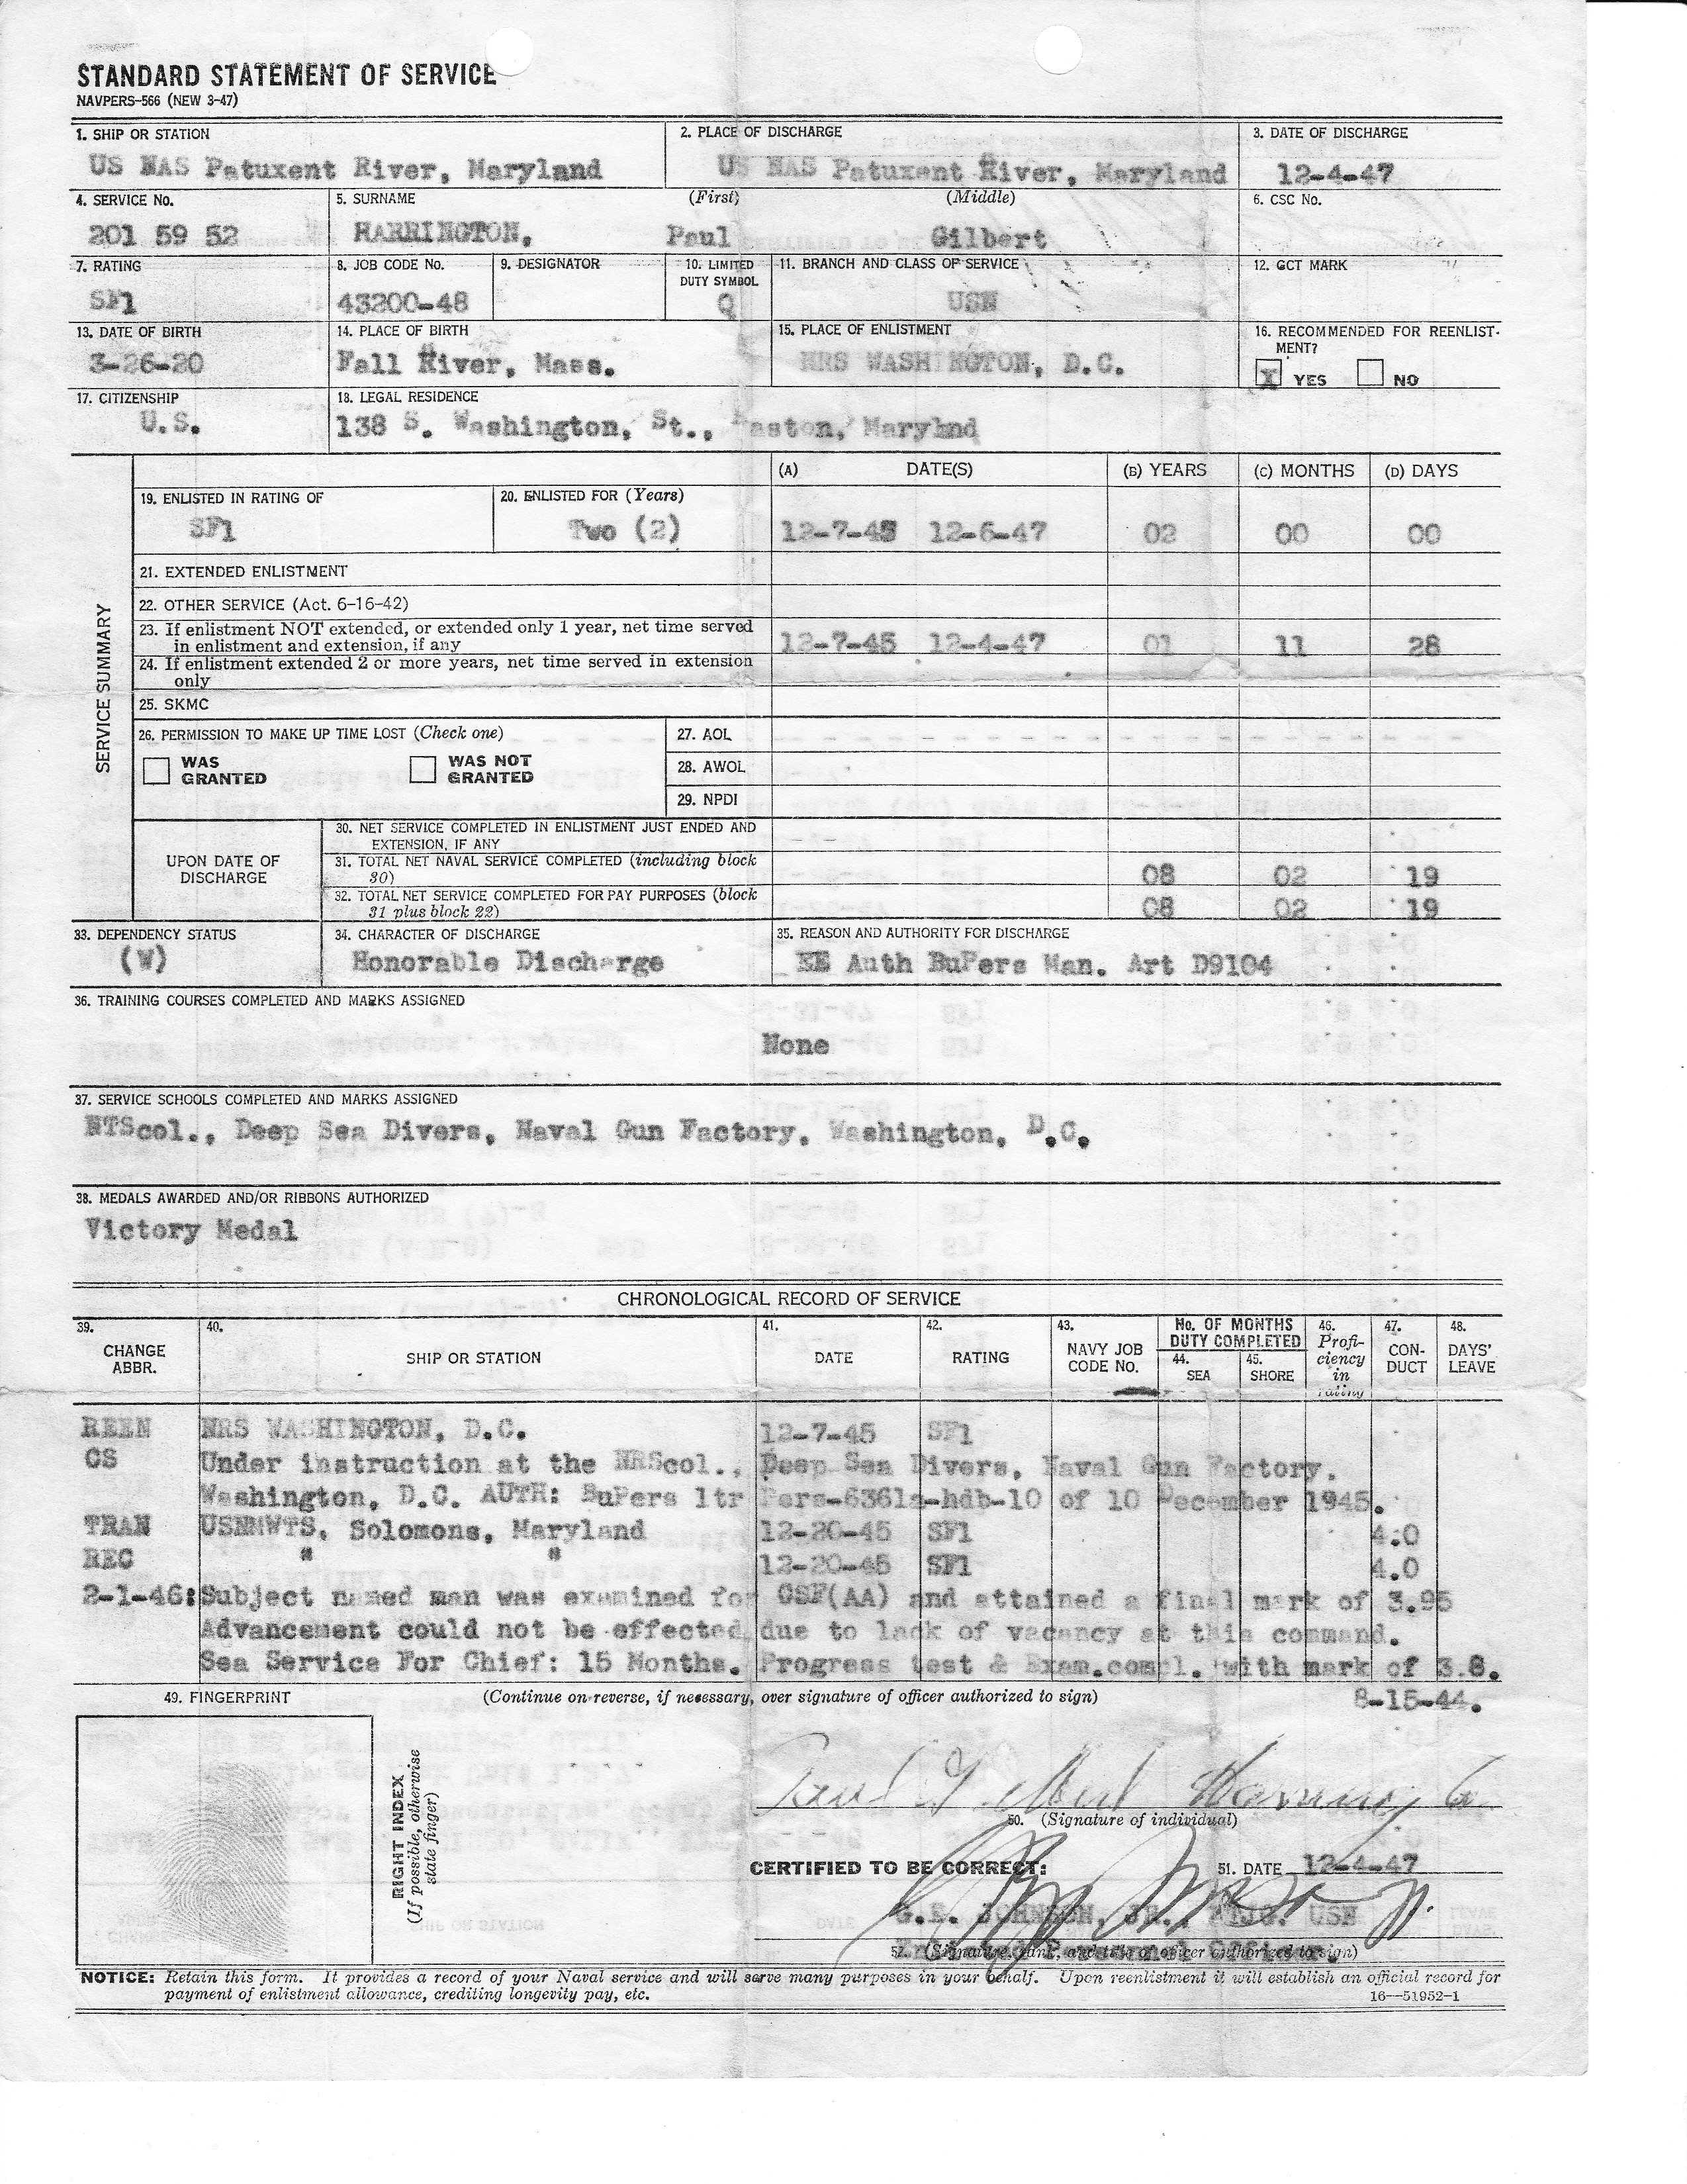 STANDARD STATEMENT OF SERVICE
NAVPERS-566 (NEW 3-47)
1. SHIP OR STATION 2. PLACE OF DISCHARGE 3. DATE OF DISCHARGE
US NAS Patuxent River, Maryland US NAS Patuxent River, Maryland 12-4-47
4. SERVICE No. 5. SURNAME (First) (Middle) 6. CSC No.
201 59 52 HARRINGTON, Paul Gilbert
7. RATING 8. JOB CODE No. 9. DESIGNATOR 10. LIMITED DUTY SYMBOL 11. BRANCH AND CLASS OF SERVICE 12. GCT MARK
SF1 43200-48 Q USN
13. DATE OF BIRTH 14. PLACE OF BIRTH 15. PLACE OF ENLISTMENT 16. RECOMMENDED FOR REENLIST-
MENT?
3-26-20 Fall River, Mass. NRS WASHINGTON, D.C. X YES NO
17. CITIZENSHIP 18. LEGAL RESIDENCE
U.S. 138 S. Washington, St., Easton, Marylnd
SERVICE SUMMARY
(A) DATE(S) (B) YEARS (C) MONTHS (D) DAYS
19. ENLISTED IN RATING OF 20. ENLISTED FOR (Years)
SF1 Two (2) 12-7-45 12-6-47 02 00 00
21. EXTENDED ENLISTMENT
22. OTHER SERVICE (Act. 6-16-42)
23. If enlistment NOT extended, or extended only 1 year, net time served
in enlistment and extension, if any 12-7-45 12-4-47 01 11 28
24. If enlistment extended 2 or more years, net time served in extension
only
25. SKMC
26. PERMISSION TO MAKE UP TIME LOST (Check one) 27. AOL
WAS GRANTED WAS NOT GRANTED 28. AWOL
29. NPDI
UPON DATE OF DISCHARGE
30. NET SERVICE COMPLETED IN ENLISTMENT JUST ENDED AND
EXTENSION, IF ANY
31. TOTAL NET NAVAL SERVICE COMPLETED (including block
30) 08 02 19
32. TOTAL NET SERVICE COMPLETED FOR PAY PURPOSES (block
31 plus block 22) 08 02 19
33. DEPENDENCY STATUS 34. CHARACTER OF DISCHARGE 35. REASON AND AUTHORITY FOR DISCHARGE
(W) Honorable Discharge EE Auth BuPers Man. Art D9104
36. TRAINING COURSES COMPLETED AND MARKS ASSIGNED
None
37. SERVICE SCHOOLS COMPLETED AND MARKS ASSIGNED
NTScol., Deep Sea Divers, Naval Gun Factory, Washington, D.C.
38. MEDALS AWARDED AND/OR RIBBONS AUTHORIZED
Victory Medal
CHRONOLOGICAL RECORD OF SERVICE
39. CHANGE ABBR. 40. SHIP OR STATION 41. DATE 42. RATING 43. NAVY JOB CODE No. No. OF MONTHS DUTY COMPLETED 44. SEA 45. SHORE 46. Proficiency in rating 47. CONDUCT 48. DAYS' LEAVE
REEN NRS WASHINGTON, D.C. 12-7-45 SF1
CS Under instruction at the NRScol., Deep Sea Divers, Naval Gun Factory.
Washington, D.C. AUTH: BuPers ltr Pers-6361a-hdb-10 of 10 December 1945.
TRAN USNMWTS, Solomons, Maryland 12-20-45 SF1 4.0
REC " " 12-20-45 SF1 4.0
2-1-46: Subject named man was examined for CSF(AA) and attained a final mark of 3.95
Advancement could not be effected due to lack of vacancy at this command.
Sea Service For Chief: 15 Months. Progress test & Exam.compl. with mark of 3.8.
49. FINGERPRINT (Continue on reverse, if necessary, over signature of officer authorized to sign) 8-15-44.
RIGHT INDEX
(If possible, otherwise
state finger)
Paul Gilbert Harrington
50. (Signature of individual)
CERTIFIED TO BE CORRECT: 51. DATE 12-4-47
G.E. JOHNSON, JR., USN
52. (Signature, rank, and title of officer authorized to sign)
NOTICE: Retain this form. It provides a record of your Naval service and will serve many purposes in your behalf. Upon reenlistment it will establish an official record for
payment of enlistment allowance, crediting longevity pay, etc. 16—51952-1